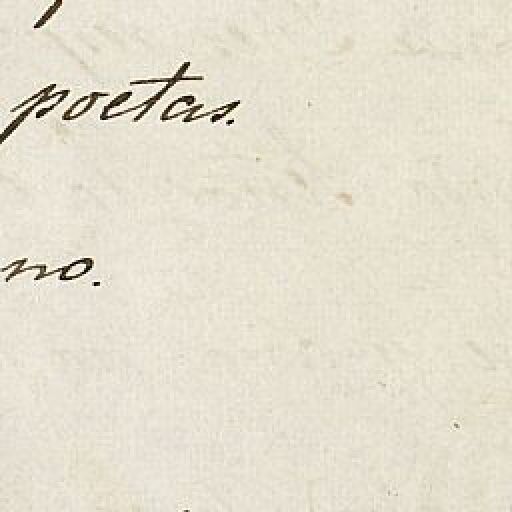 poetas.
no.